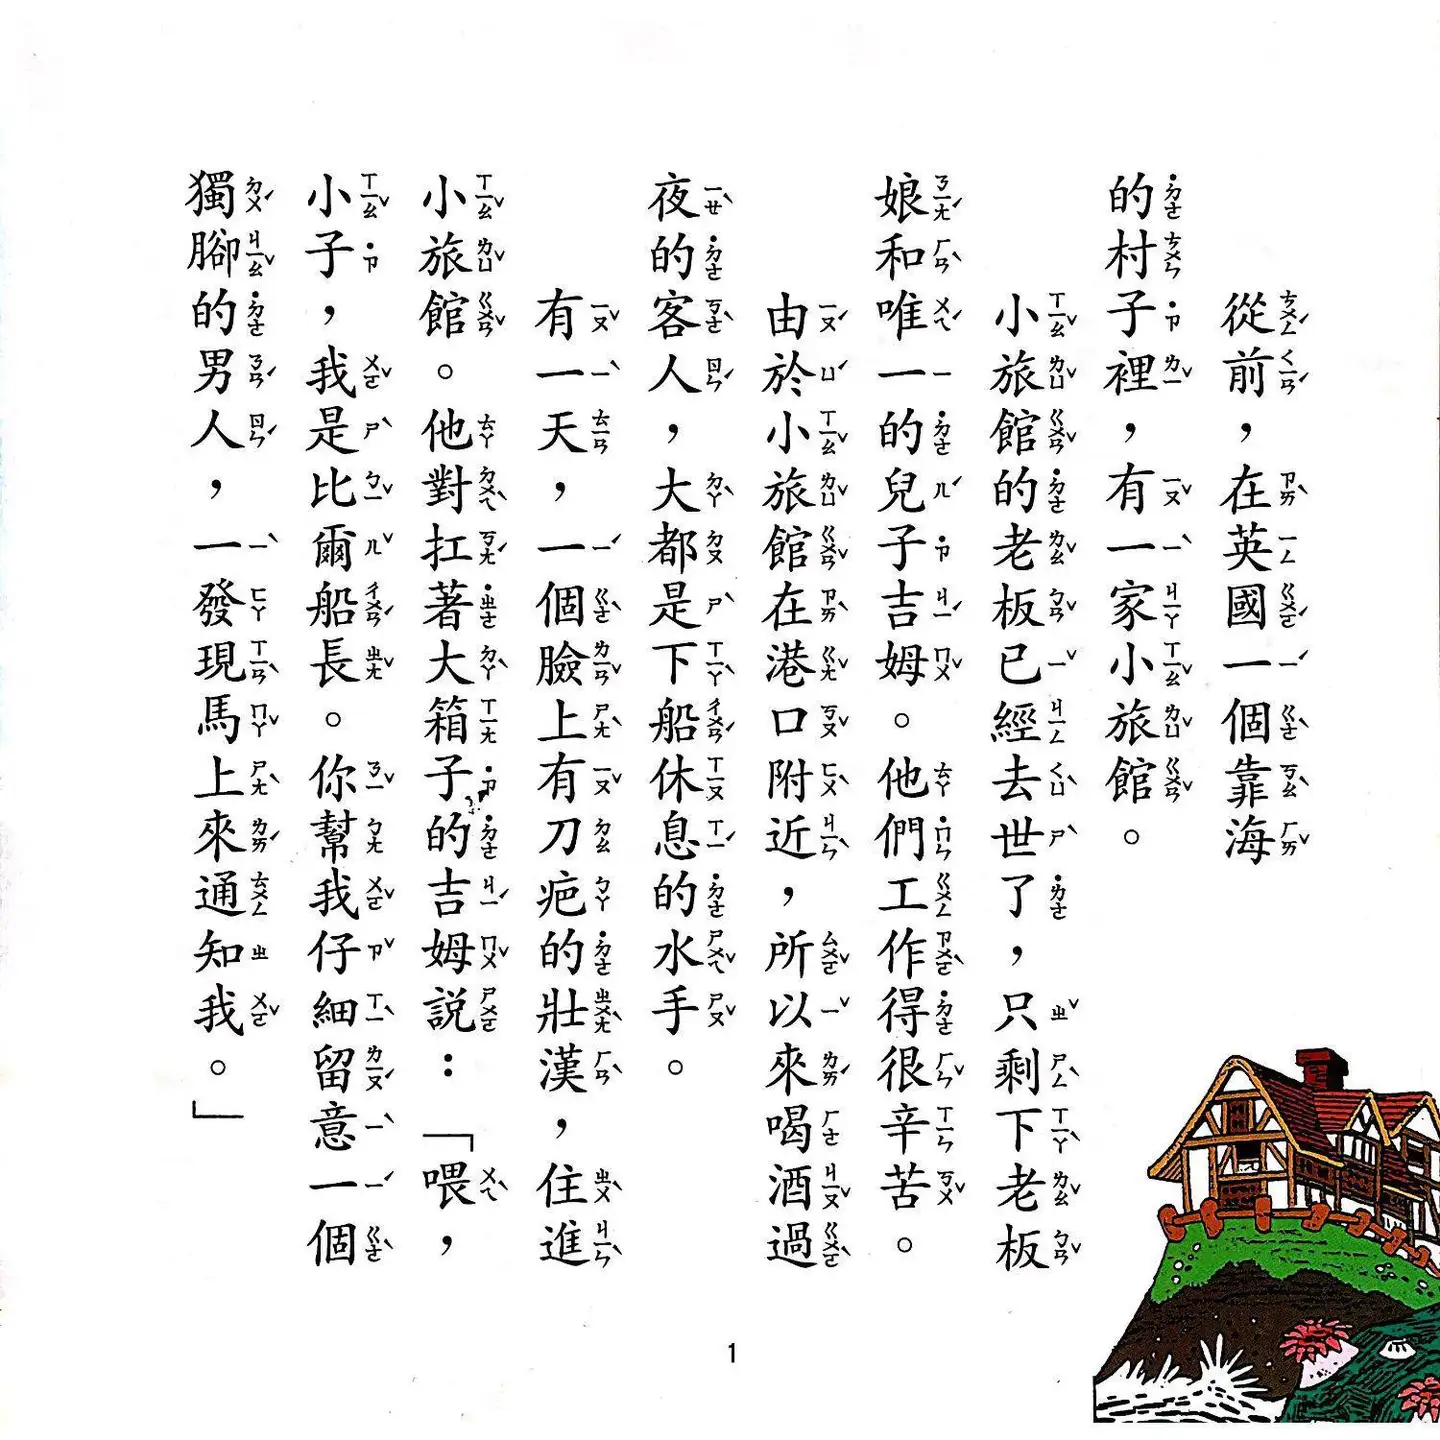 從前，在英國一個靠海
的村子裡，有一家小旅館。
小旅館的老板已經去世了，只剩下老板
娘和唯一的兒子吉姆。他們工作得很辛苦。
由於小旅館在港口附近，所以來喝酒過
夜的客人，大都是下船休息的水手。
有一天，一個臉上有刀疤的壯漢，住進
小旅館。他對扛著大箱子的吉姆說：「喂，
小子，我是比爾船長。你幫我仔細留意一個
獨腳的男人，一發現馬上來通知我。」
1